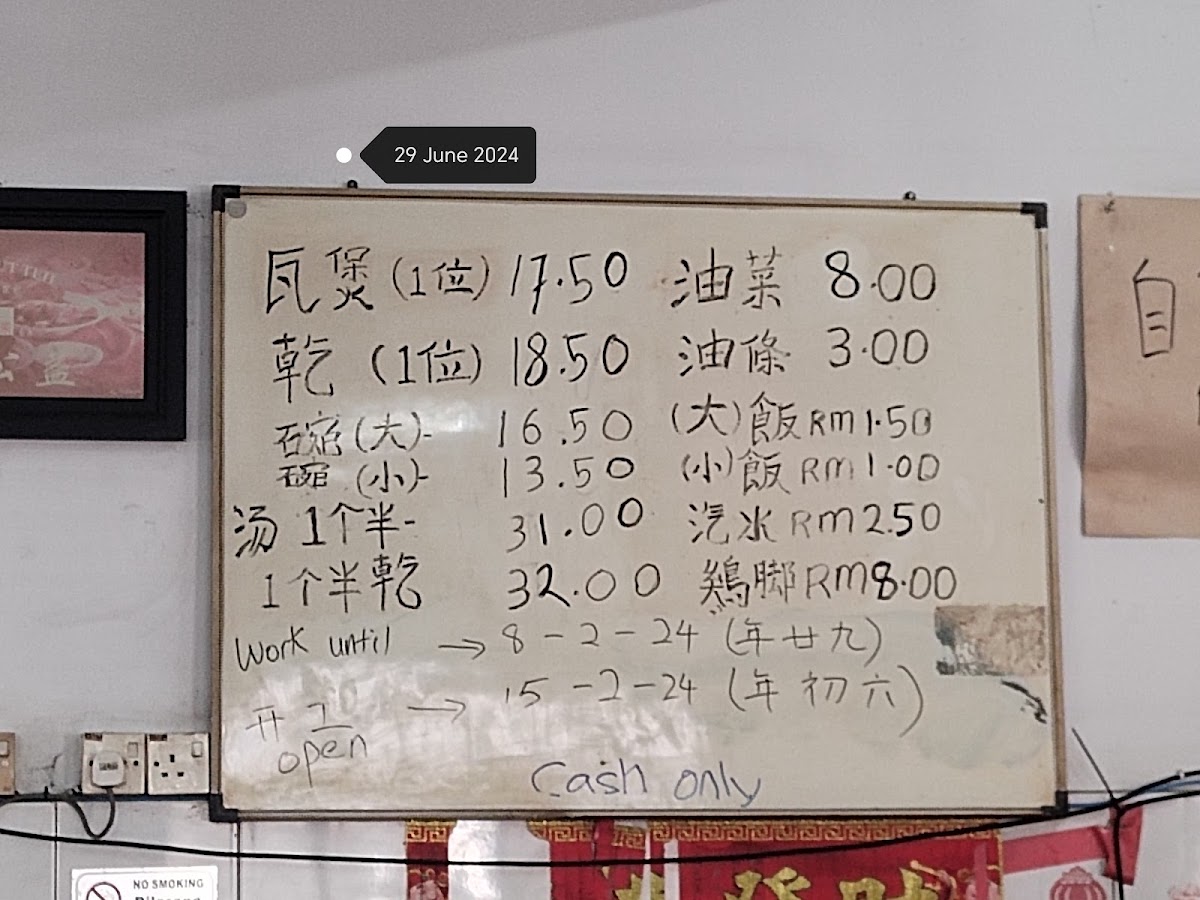 29 June 2024
瓦煲 (1位) 17.50 油菜 8.00
乾 (1位) 18.50 油條 3.00
碗 (大)- 16.50 (大) 飯 RM1.50
碗 (小)- 13.50 (小) 飯 RM1.00
汤 1个半- 31.00 汽水 RM2.50
1个半乾 32.00 鷄脚 RM8.00
Work until → 8-2-24 (年廿九)
开工 → 15-2-24 (年初六)
open
Cash only
自
NO SMOKING